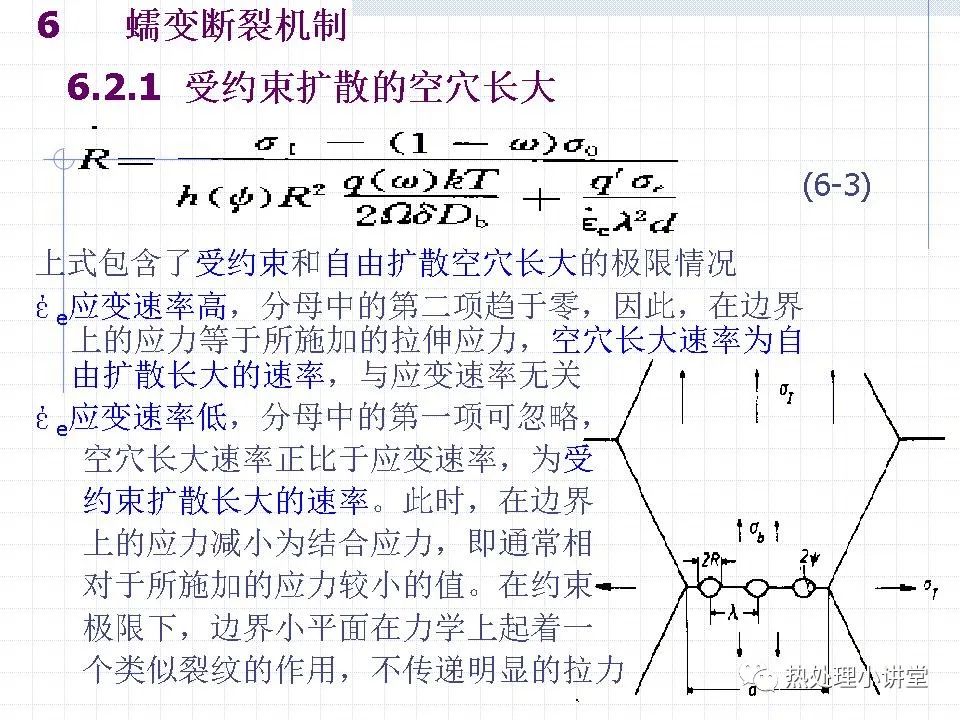 6 蠕变断裂机制
6.2.1 受约束扩散的空穴长大
Ṙ = (σ_I − (1 − ω)σ_0) / (h(ψ)R² q(ω)kT / 2ΩδD_b + q′σ_e / ε̇_e λ²d)
(6-3)
上式包含了受约束和自由扩散空穴长大的极限情况
έe应变速率高，分母中的第二项趋于零，因此，在边界
上的应力等于所施加的拉伸应力，空穴长大速率为自
由扩散长大的速率，与应变速率无关
έe应变速率低，分母中的第一项可忽略，
空穴长大速率正比于应变速率，为受
约束扩散长大的速率。此时，在边界
上的应力减小为结合应力，即通常相
对于所施加的应力较小的值。在约束
极限下，边界小平面在力学上起着一
个类似裂纹的作用，不传递明显的拉力
σ_I
σ_b
2R
2ψ
λ
σ_T
d
热处理小讲堂